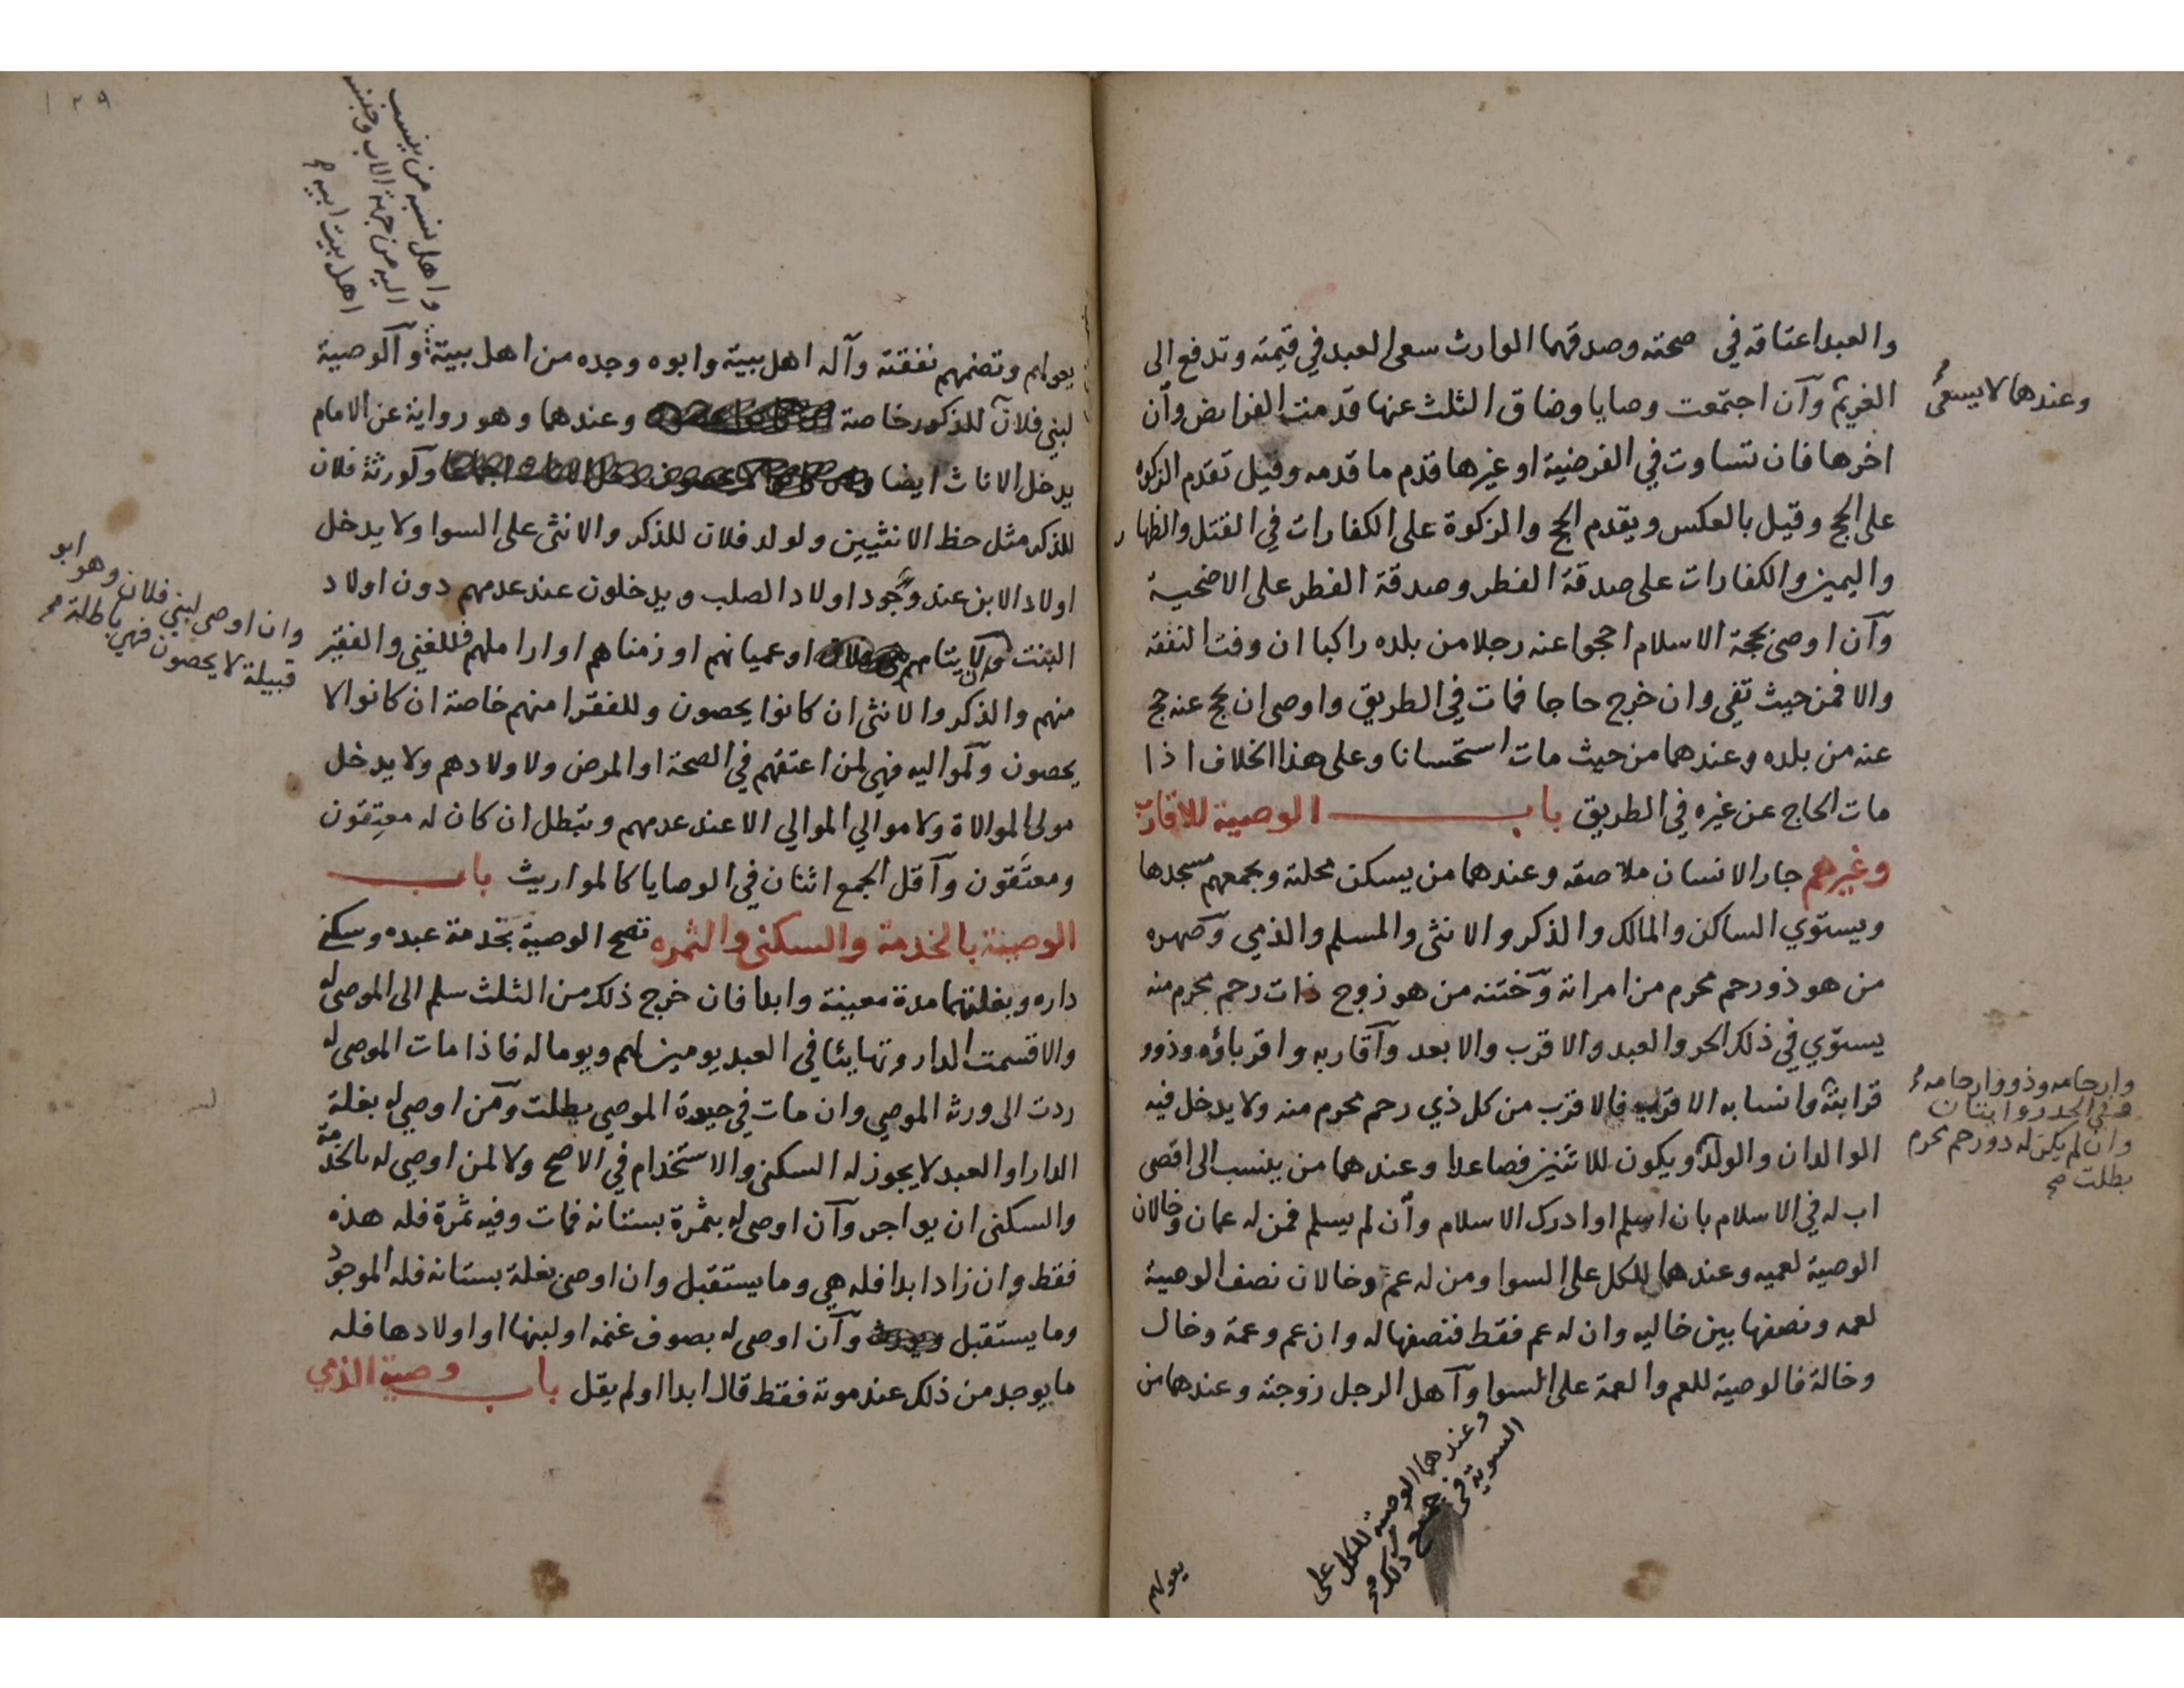 والعبد اعتاقه في صحته وصدقهما الوارث سعى العبد في قيمته وتدفع الى
الغريم وآن اجتمعت وصايا وضاق الثلث عنها قدمت الفرايض وآن
اخرها فان تساوت في الفرضية او غيرها قدم ما قدمه وقيل تقدم الزكوة
على الحج وقيل بالعكس ويقدم الحج والزكوة على الكفارات في القتل والظهار
واليمين والكفارات على صدقة الفطر وصدقة الفطر على الاضحية
وآن اوصى بحجة الاسلام احجوا عنه رجلا من بلده راكبا ان وفت النفقة
والا فمن حيث تفى وان خرج حاجا فمات في الطريق واوصى ان يحج عنه حج
عنه من بلده وعندهما من حيث مات استحسانا وعلى هذا الخلاف اذا
مات الحاج عن غيره في الطريق باب الوصية للاقارب
وغيرهم جار الانسان ملاصقه وعندهما من يسكن محلته ويجمعهم مسجدها
ويستوي الساكن والمالك والذكر والانثى والمسلم والذمي وصهره
من هو ذو رحم محرم من امراته وختنه من هو زوج ذات رحم محرم منه
يستوي في ذلك الحر والعبد والاقرب والابعد وآقاربه واقرباؤه وذوو
قرابته وانسابه الاقرب فالاقرب من كل ذي رحم محرم منه ولا يدخل فيه
الوالدان والولد ويكون للاثنين فصاعدا وعندهما من ينسب الى اقصى
اب له في الاسلام بان اسلم او ادرك الاسلام وآن لم يسلم فمن له عمان وخالان
الوصية لعميه وعندهما للكل على السوا ومن له عم وخالان نصف الوصية
لعمه ونصفها بين خاليه وان له عم فقط فنصفها له وان عم وعمة وخال
وخالة فالوصية للعم والعمة على السوا وآهل الرجل زوجته وعندهما من
وعندهما لا يسعى
وارحامه وذوو ارحامه
وفي الجد روايتان
وان لم يكن له ذو رحم محرم
بطلت صح
وعندهما الوصية للكل على
السوية في جميع ذلك
يعولهم
١٢٩
واهل نسبه من ينسب
اليه من جهة الاب وجنسه
اهل بيت ابيه
يعولهم وتضمهم نفقته وآله اهل بيته وابوه وجده من اهل بيته وآلوصية
لبني فلان للذكور خاصة وعندهما وهو رواية عن الامام
يدخل الاناث ايضا وآورثة فلان
للذكر مثل حظ الانثيين ولولد فلان للذكر والانثى على السوا ولا يدخل
اولاد الابن عند وجود اولاد الصلب ويدخلون عند عدمهم دون اولاد
البنت وان لايتامهم او عميانهم او زمناهم او اراملهم فللغني والفقير
منهم والذكر والانثى ان كانوا يحصون وللفقرا منهم خاصة ان كانوا لا
يحصون وآلمواليه فهي لمن اعتقهم في الصحة او المرض ولاولادهم ولا يدخل
مولى الموالاة ولا موالي الموالي الا عند عدمهم وتبطل ان كان له معتِقون
ومعتَقون وآقل الجمع اثنان في الوصايا كالمواريث باب
الوصية بالخدمة والسكنى والثمره تصح الوصية بخدمة عبده وسكنى
داره وبغلتهما مدة معينة وابدا فان خرج ذلك من الثلث سلم الى الموصى له
والا قسمت الدار وتهايئا في العبد يومين لهم ويوما له فاذا مات الموصى له
ردت الى ورثه الموصي وان مات في حيوة الموصي بطلت ومن اوصي له بغلة
الدار او العبد لا يجوز له السكنى والاستخدام في الاصح ولا لمن اوصي له بالخدمة
والسكنى ان يواجر وآن اوصي له بثمرة بستانه فمات وفيه ثمرة فله هذه
فقط وان زاد ابدا فله هي وما يستقبل وان اوصى بغلة بستانه فله الموجود
وما يستقبل وآن اوصى له بصوف غنمه او لبنها او اولادها فله
ما يوجد من ذلك عند موته فقط قال ابدا او لم يقل باب وصية الذمي
وان اوصى لبني فلان وهو ابو
قبيلة لا يحصون فهي باطلة